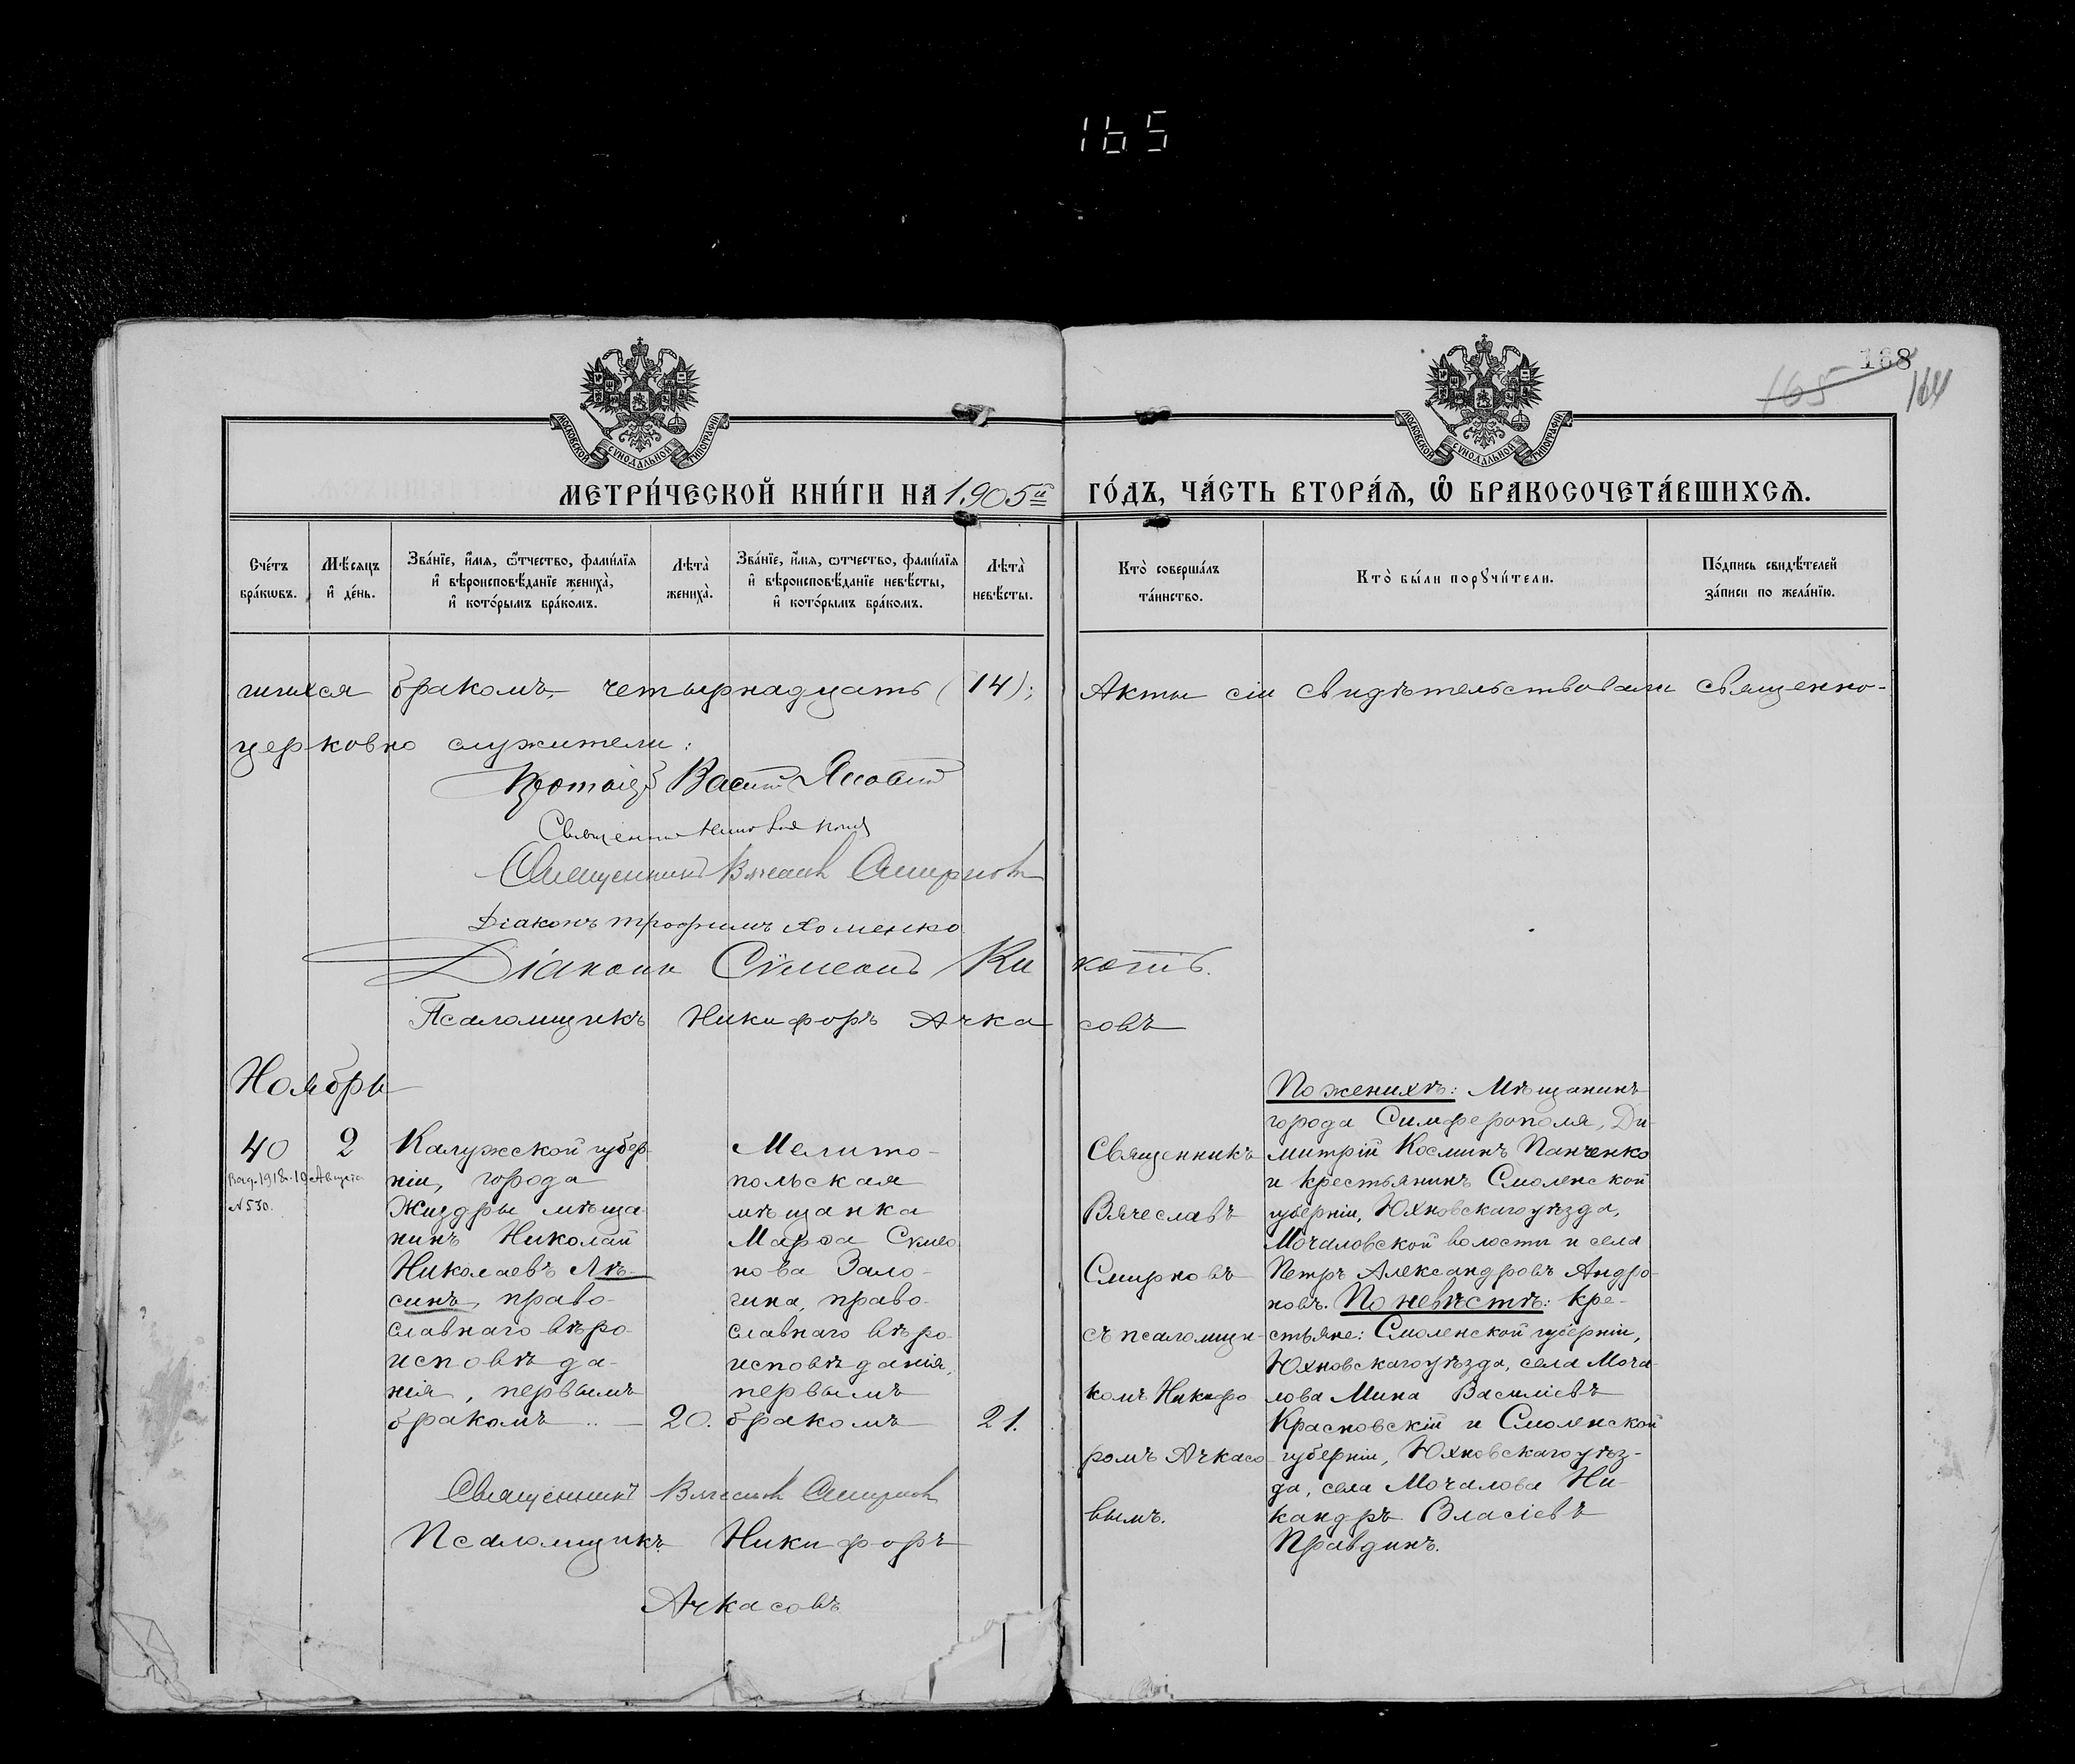 165
168
165
164
МОСКОВСКОЙ СѴНОДАЛЬНОЙ ТИПОГРАФІИ
МОСКОВСКОЙ СѴНОДАЛЬНОЙ ТИПОГРАФІИ
МЕТРИ́ЧЕСКОЙ КНИ́ГИ НА 1905й ГО́ДЪ, ЧА́СТЬ ВТОРА́Ѧ, Ѽ БРАКОСОЧЕТА́ВШИХСѦ.
Сче́тъ
бра́кѡвъ.
Мѣ́сѧцъ
и҆ де́нь.
Зва́нїе, и҆́мѧ, ѻ҆́тчество, фами́лїѧ
и҆ вѣроисповѣ́данїе жениха̀,
и҆ кото́рымъ бра́комъ.
Лѣта̀
жениха̀.
Зва́нїе, и҆́мѧ, ѡтчество, фами́лїѧ
и҆ вѣроисповѣ́данїе невѣ́сты,
и҆ кото́рымъ бра́комъ.
Лѣта̀
невѣ́сты.
Кто̀ соверша́лъ
та́инство.
Кто̀ бы́ли порꙋчи́тели.
По́дпись свидѣ́телей
за́писи по жела́нїю.
шихся бракомъ,- четырнадцать (14); Акты сіи свидѣтельствовали священно-
церковно служители:
Протоіер Васил
Священник
Священникъ Вячеслав Смирновъ
Діаконъ Трофимъ Хоменко
Діаконъ Сѵмеонъ Кикоть.
Псаломщикъ Никифоръ Ачкасовъ
Ноябрь
40
Выд. 1918г. 10 Августа
№ 530.
2
Калужской губер-
ніи, города
Жиздры мѣща-
нинъ Николай
Николаевъ Лѣ-
синъ, право-
славнаго вѣро-
исповѣда-
нія, первымъ
бракомъ .. —
20.
Мелито-
польская
мѣщанка
Марѳа Сѵмео-
нова Зало-
гина, право-
славнаго вѣро-
исповѣданія,
первымъ
бракомъ
21.
Священникъ
Вячеславъ
Смирновъ
съ псаломщи-
комъ Никифо
ромъ Ачкасо-
вымъ.
По женихѣ: Мѣщанинъ
города Симферополя, Ди-
митрій Косминъ Панченко
и крестьянинъ Смоленской
губерніи, Юхновскаго уѣзда,
Мочаловской волости и села
Петръ Александровъ Андро-
новъ. По невѣстѣ: кре-
стьяне: Смоленской губерніи,
Юхновскаго уѣзда, села Моча-
лова Мина Василіевъ
Красновскій и Смоленской
губерніи, Юхновскаго уѣз-
да, села Мочалова Ни-
кандръ Власіевъ
Правдинъ.
Священникъ Вячеслав Смирнов
Псаломщикъ Никифоръ
Ачкасовъ